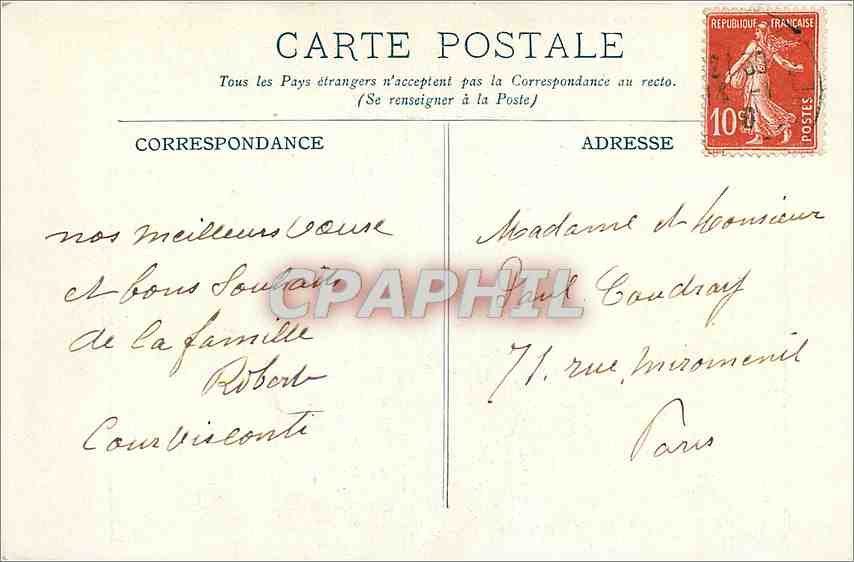 CARTE POSTALE
Tous les Pays étrangers n'acceptent pas la Correspondance au recto.
(Se renseigner à la Poste)
REPUBLIQUE FRANÇAISE
10c
POSTES
CORRESPONDANCE
nos meilleurs Voeux
et bons Souhaits
de la famille
Robert
Courvisconti
ADRESSE
Madame et Monsieur
Paul Coudray
71. rue Miromenil
Paris
CPAPHIL